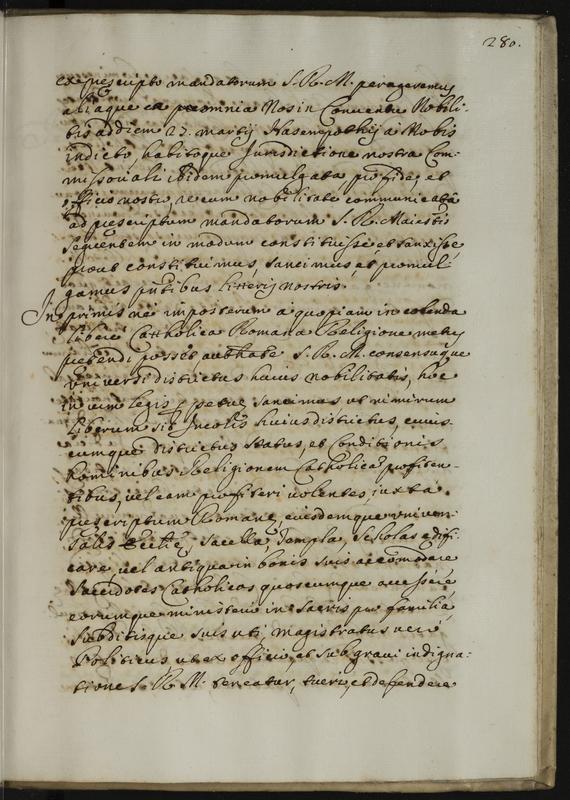 280.
ex præscripto mandatorum S. R. M. perageremus
aliaque ea omnia Nos in Conventu Nobili-
tis ad diem 22. martij Hasempothij a Nobis
indicto, habitoque Jurisdictione nostra Com-
missoriali ibidem promulgata pro fide, et
officio nostro, re cum nobilitate communicata
ad præscriptum mandatorum S. R. Maiestis
sequentem in modum constituisse et sanxisse
prout constituimus, sancimus et promul-
gamus pntibus litteris nostris.
In primis nei imposterum a quopiam in colenda
libere Catholica Romana Religione metus
petendi possit authte S. R. M. consensuque
universi districtus huius nobilitatis, hoc
in vim legis ppetuæ sancimus ut nimirum
liberum sit Incolis huius districtus, cuius-
cumque districtus status, et Conditionis
hominibus Religionem Catholicã profiten-
tibus, vel eam profiteri volentes, iuxta
præscriptum Romanæ, eiusdemque univer-
salis Eccliæ, Sacella, Templa, Scholas ædifi-
care, vel antiqua in bonis suis accomodare
Sacerdotes Catholicos quoscumque accessere
eorumque ministerio in Sacris pro familia
Subditisque suis uti, magistratus vero
Politicus ut ex officio, et sub gravi indigna-
tione S. R. M. teneatur, tueri, et defendere